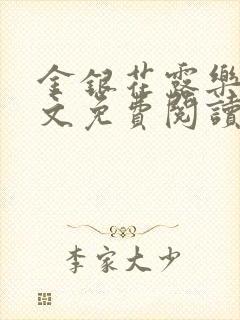 金銀花露樂
文免費閱讀
李家大少